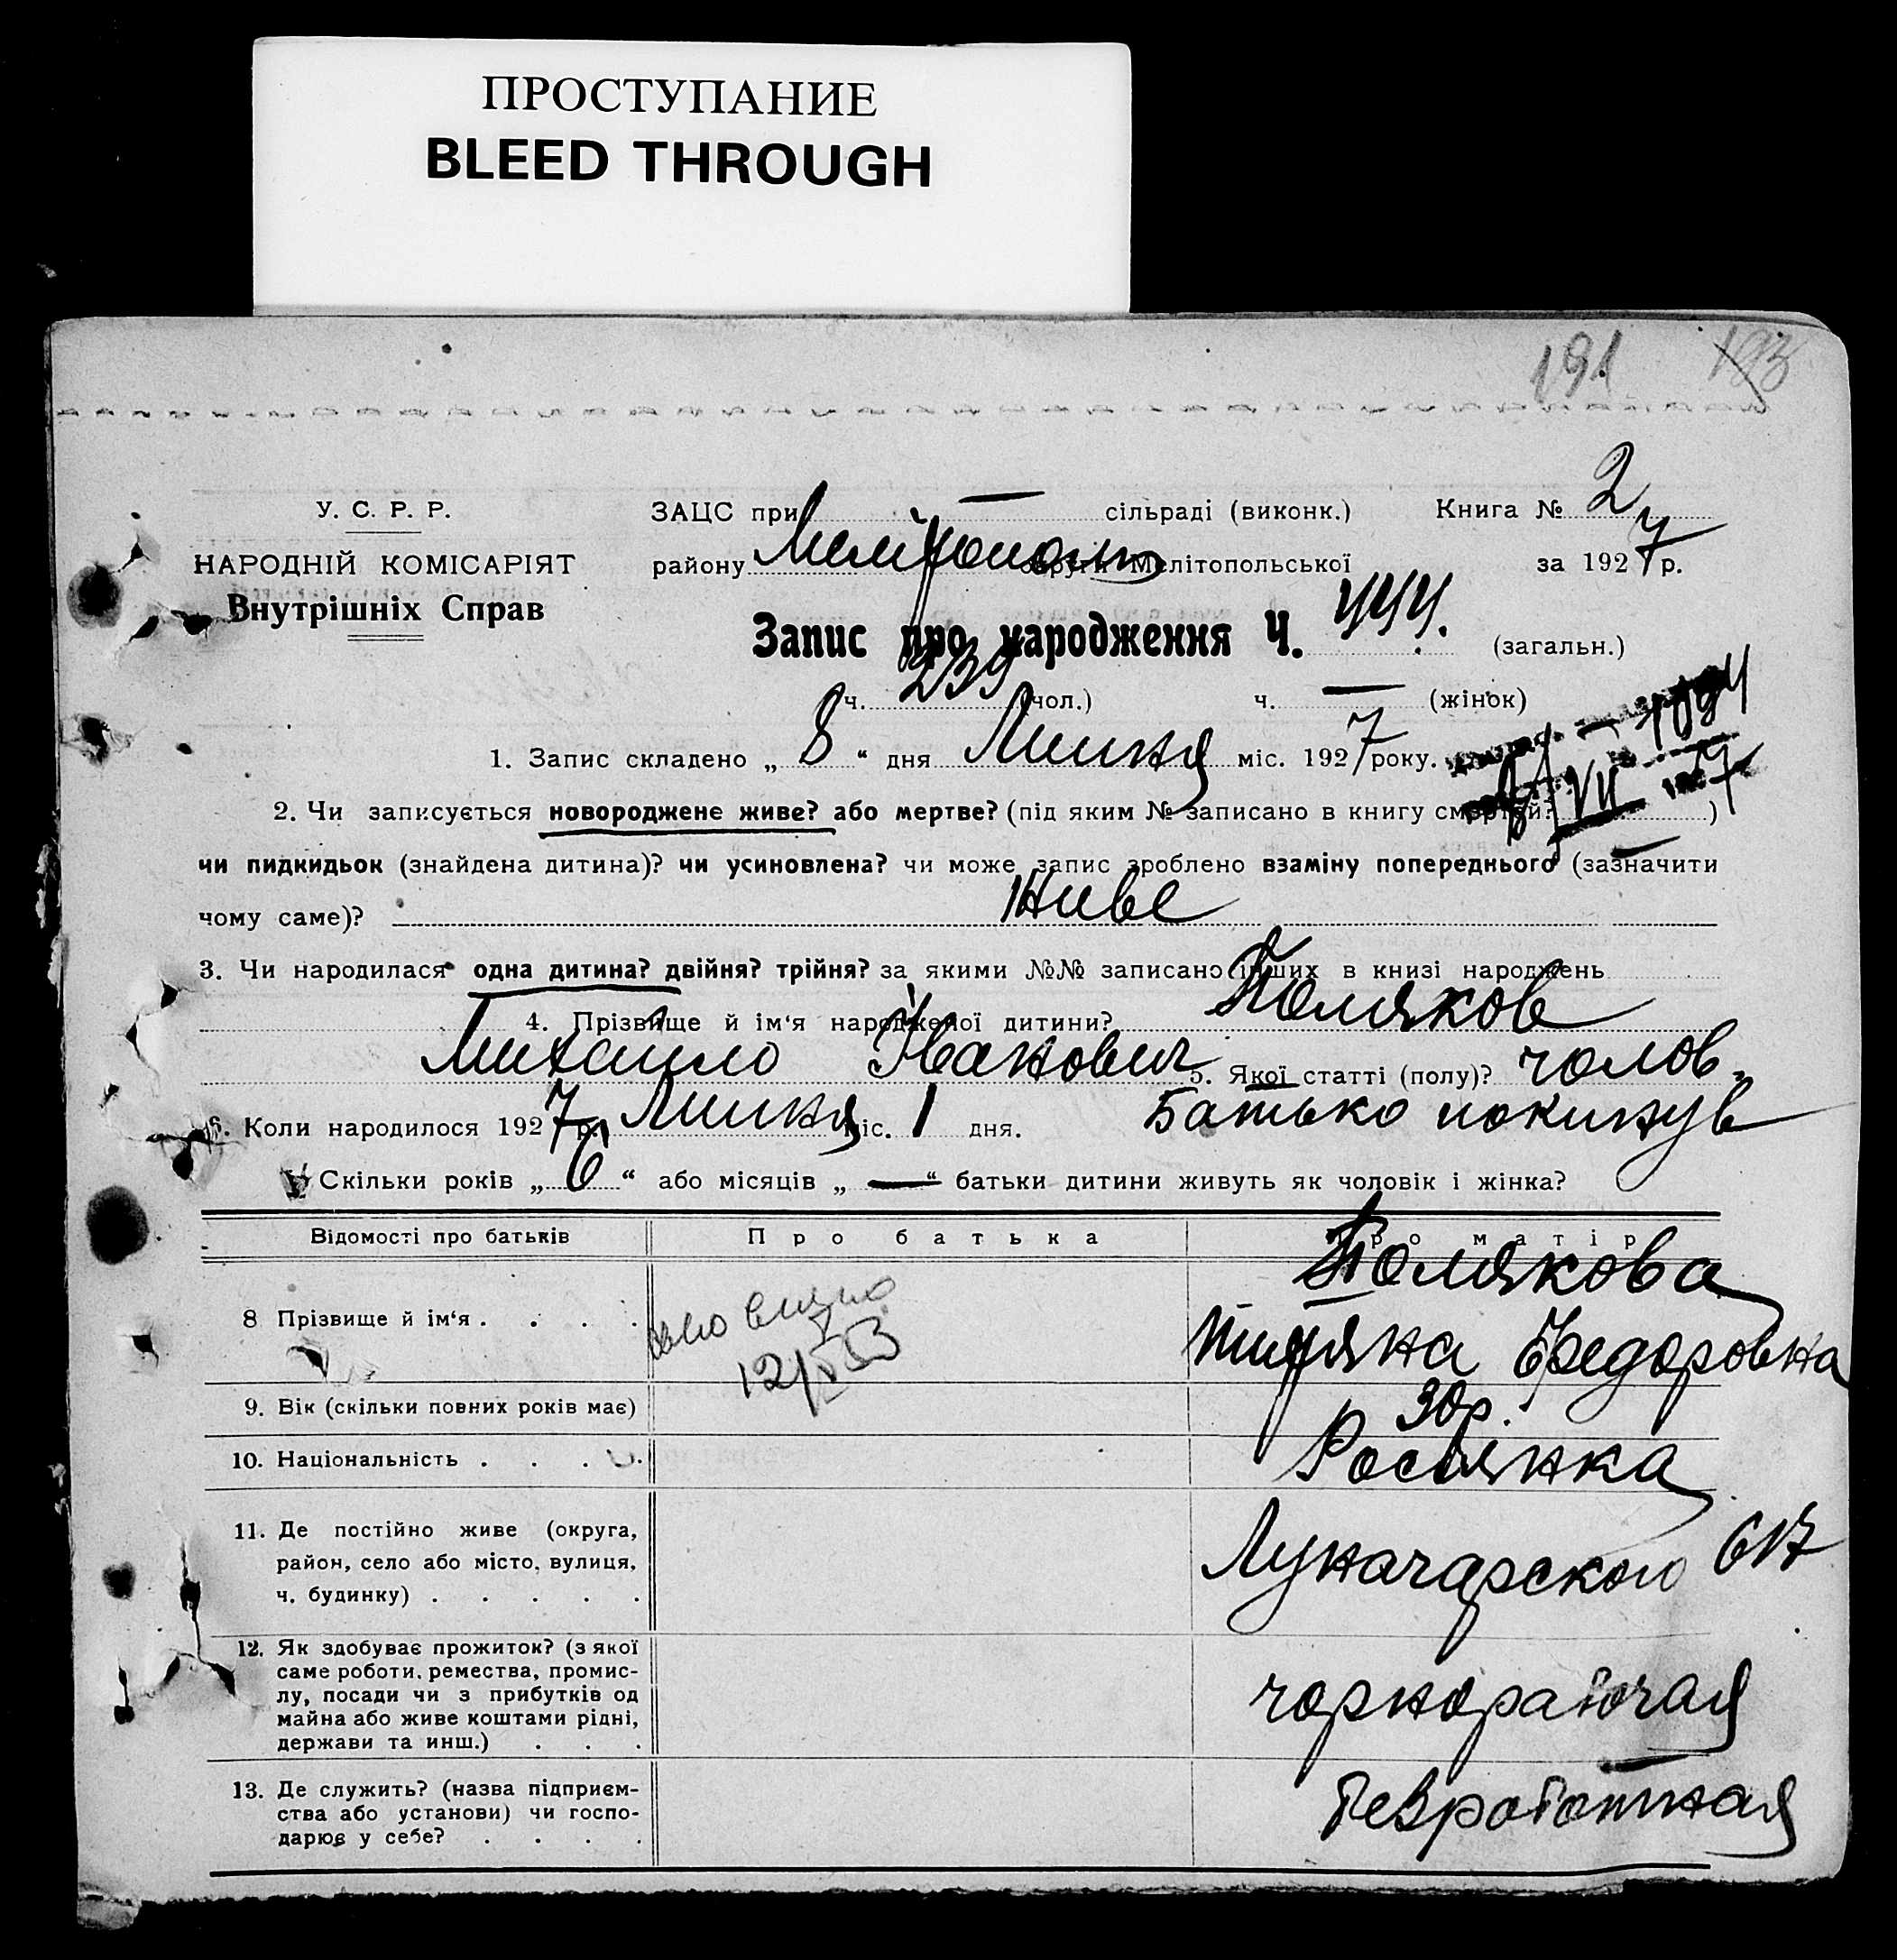 ПРОСТУПАНИЕ
BLEED THROUGH
191 193
У. С. Р. Р.
НАРОДНІЙ КОМІСАРІЯТ
Внутрішніх Справ
ЗАЦС при — сільраді (виконк.) Книга № 2
району Мелітополь округи Мелітопольської за 1927 р.
Запис про народження Ч. 444. (загальн.)
ч. 239 (чол.) ч. — (жінок)
1. Запис складено „ 8 “ дня Липня міс. 1927 року.
2. Чи записується новороджене живе? або мертве? (під яким № записано в книгу смертей? )
чи пидкидьок (знайдена дитина)? чи усиновлена? чи може запис зроблено взаміну попереднього (зазначити
чому саме)? Живе
3. Чи народилася одна дитина? двійня? трійня? за якими №№ записано інших в книзі народжень
4. Прізвище й ім‘я народженої дитини? Поляков
Михайло Іванович 5. Якої статті (полу)? чолов.
6. Коли народилося 1927 р. Липня міс. 1 дня. Батько покинув
Скільки років „ 6 “ або місяців „ — “ батьки дитини живуть як чоловік і жінка?
Відомості про батьків Про батька Про матір
8 Прізвище й ім‘я . . . . Полякова
Федоровна
12/V 53
9. Вік (скільки повних років має) 30 р.
10. Національність . . . . Росіянка
11. Де постійно живе (округа,
район, село або місто, вулиця,
ч. будинку) . . . . . Луначарского
12. Як здобуває прожиток? (з якої
саме роботи, ремества, промис-
лу, посади чи з прибутків од
майна або живе коштами рідні,
держави та инш.) . . . чорнорабочая
13. Де служить? (назва підприєм-
ства або установи) чи госпо-
дарює у себе? . . . . безработная